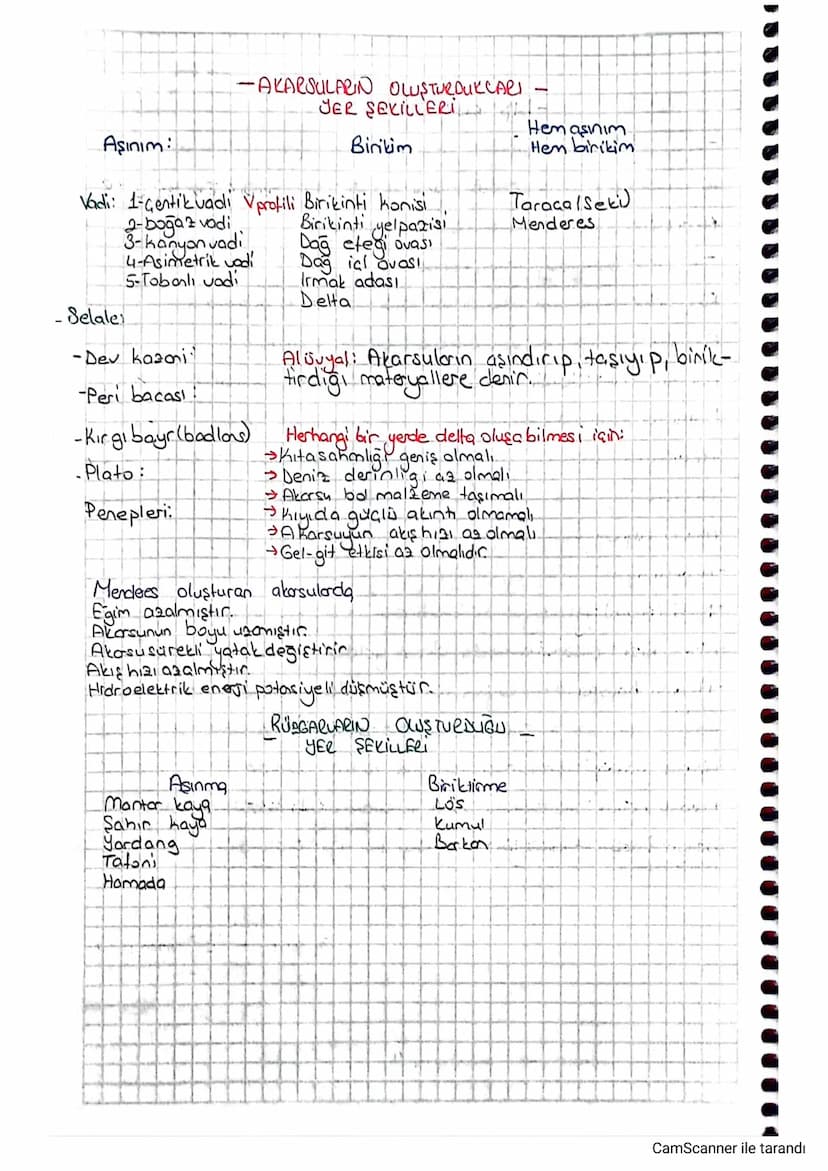 - AKARSULARIN OLUŞTURDUKLARI -
YER ŞEKİLLERİ
Aşınım:
Birikim
Hem aşınım
Hem birikim
Vadi: 1-Çentik vadi V profili
2-boğaz vadi
3-kanyon vadi
4-Asimetrik vadi
5-Tabanlı vadi
Birikinti konisi
Birikinti yelpazisi
Dağ eteği ovası
Dağ içi ovası
Irmak adası
Delta
Taraça (Seki)
Menderes
- Şelale:
-Dev kazanı:
-Peri bacası:
-Kırgıbayr (badlans)
-Plato:
Penepleri:
Alüvyal: Akarsuların aşındırıp, taşıyıp, birik-
tirdiği materyallere denir.
Herhangi bir yerde delta oluşabilmesi için:
→Kıta sahanlığı geniş olmalı
→Deniz derinliği az olmalı
→Akarsu bol malzeme taşımalı
→Kıyıda güçlü akıntı olmamalı
→Akarsuyun akış hızı az olmalı
→Gel-git etkisi az olmalıdır
Mendees oluşturan akarsularda
Eğim azalmıştır.
Akarsunun boyu uzamıştır.
Akarsu sürekli yatak değiştirir
Akış hızı azalmıştır.
Hidroelektrik enerji potasiyeli düşmüştür.
- RÜZGARLARIN OLUŞTURDUĞU -
YER ŞEKİLLERİ
Aşınma
Mantar kaya
Şahit kaya
Yardang
Tafoni
Hamada
Biriktirme
Lös
Kumul
Barkan
CamScanner ile tarandı